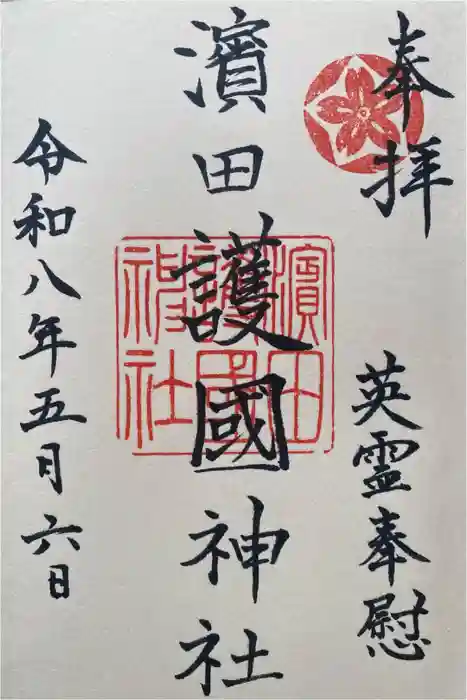 奉拝
英霊奉慰
濱田護國神社
濱田護國神社
令和八年五月六日